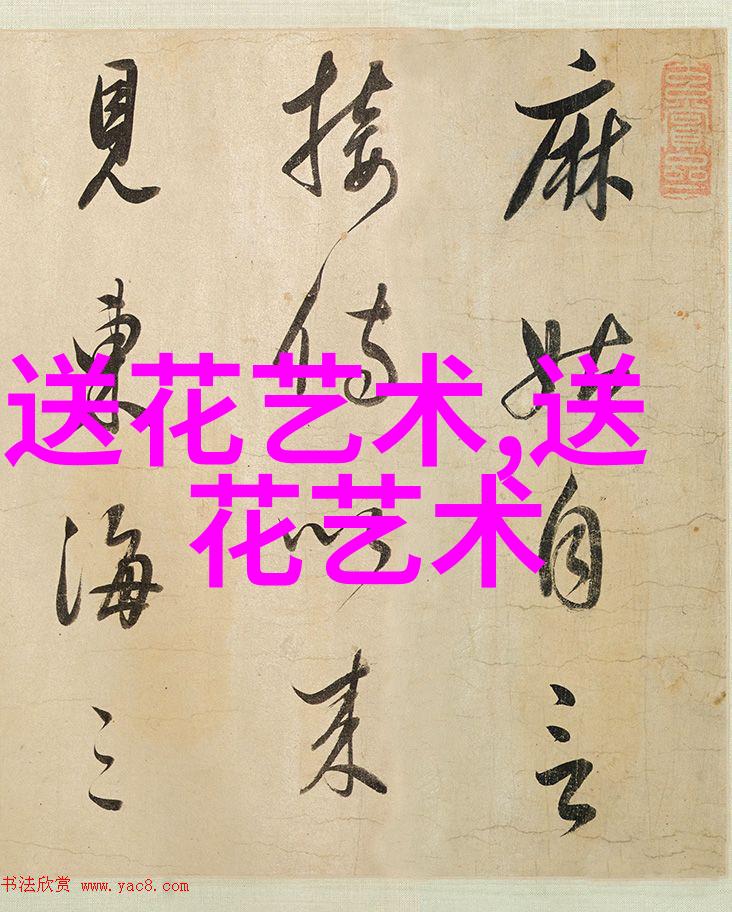 麻姑自言
接侍以来
見東海三
送花艺术,送
花艺术
书法欣赏 www.yac8.com